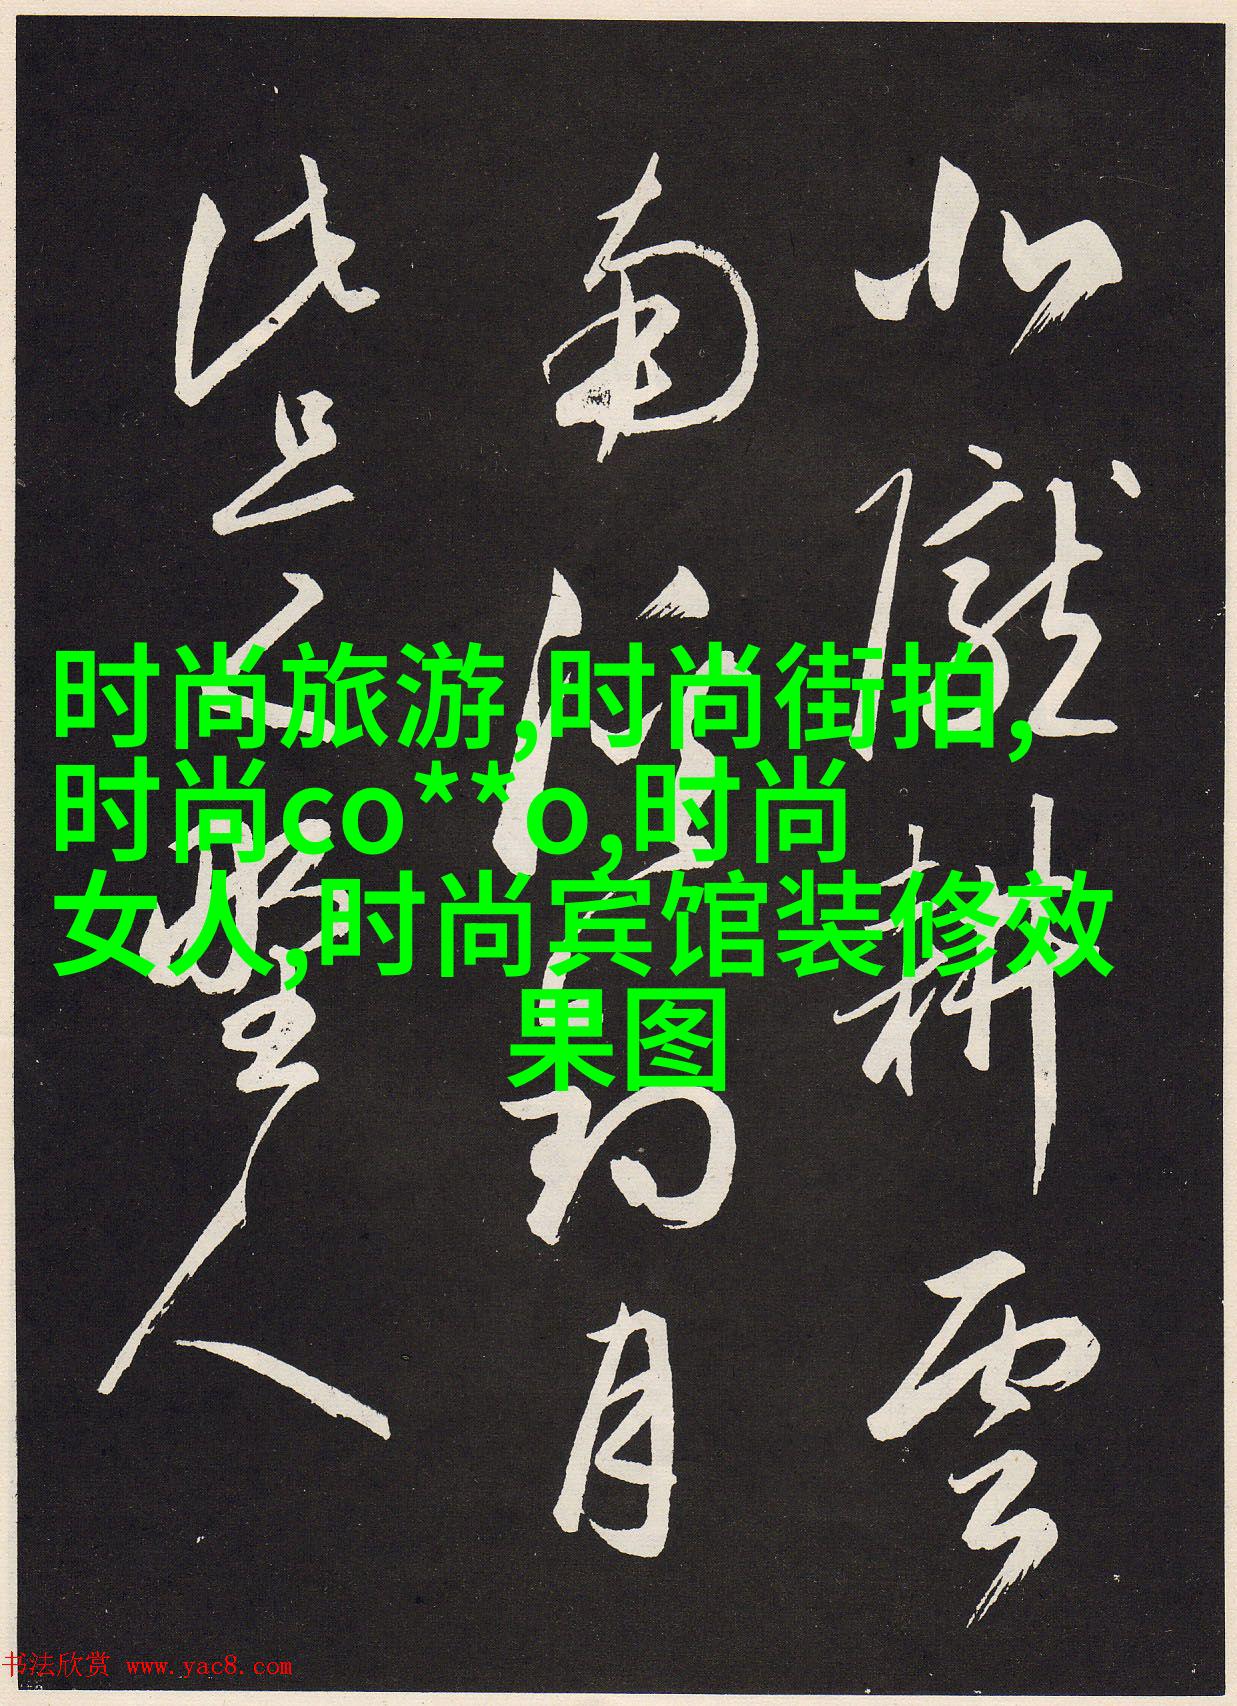 北隴耕雲
南
釣月
此
人
时尚旅游,时尚街拍,
时尚co**o,时尚
女人,时尚宾馆装修效
果图
书法欣赏 www.yac8.com